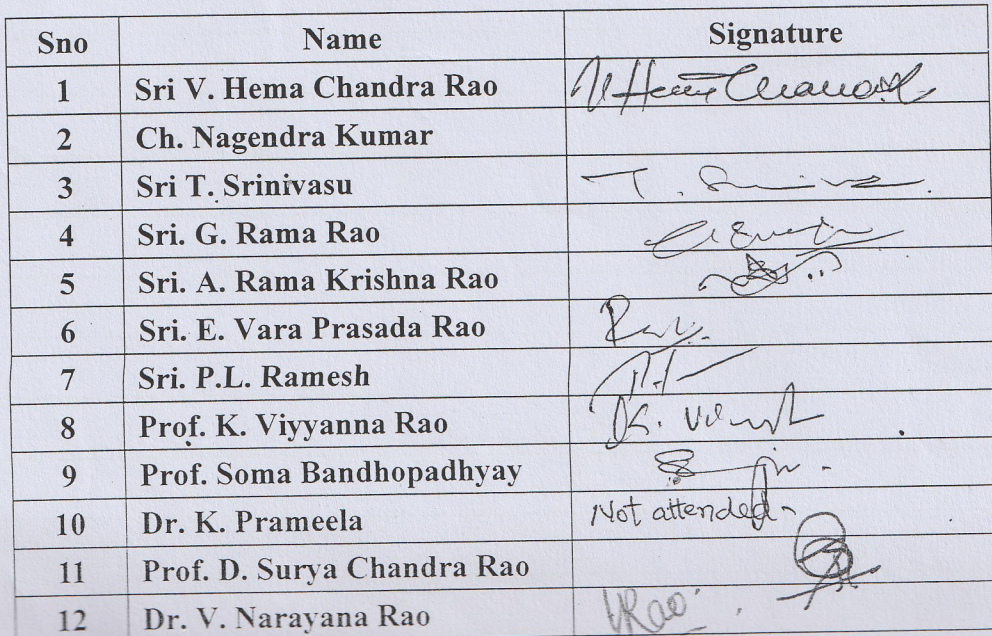 Sno Name Signature
1 Sri V. Hema Chandra Rao V Hema Chandra
2 Ch. Nagendra Kumar
3 Sri T. Srinivasu T. Sriniva
4 Sri. G. Rama Rao
5 Sri. A. Rama Krishna Rao
6 Sri. E. Vara Prasada Rao
7 Sri. P.L. Ramesh
8 Prof. K. Viyyanna Rao K.
9 Prof. Soma Bandhopadhyay
10 Dr. K. Prameela Not attended
11 Prof. D. Surya Chandra Rao
12 Dr. V. Narayana Rao VRao